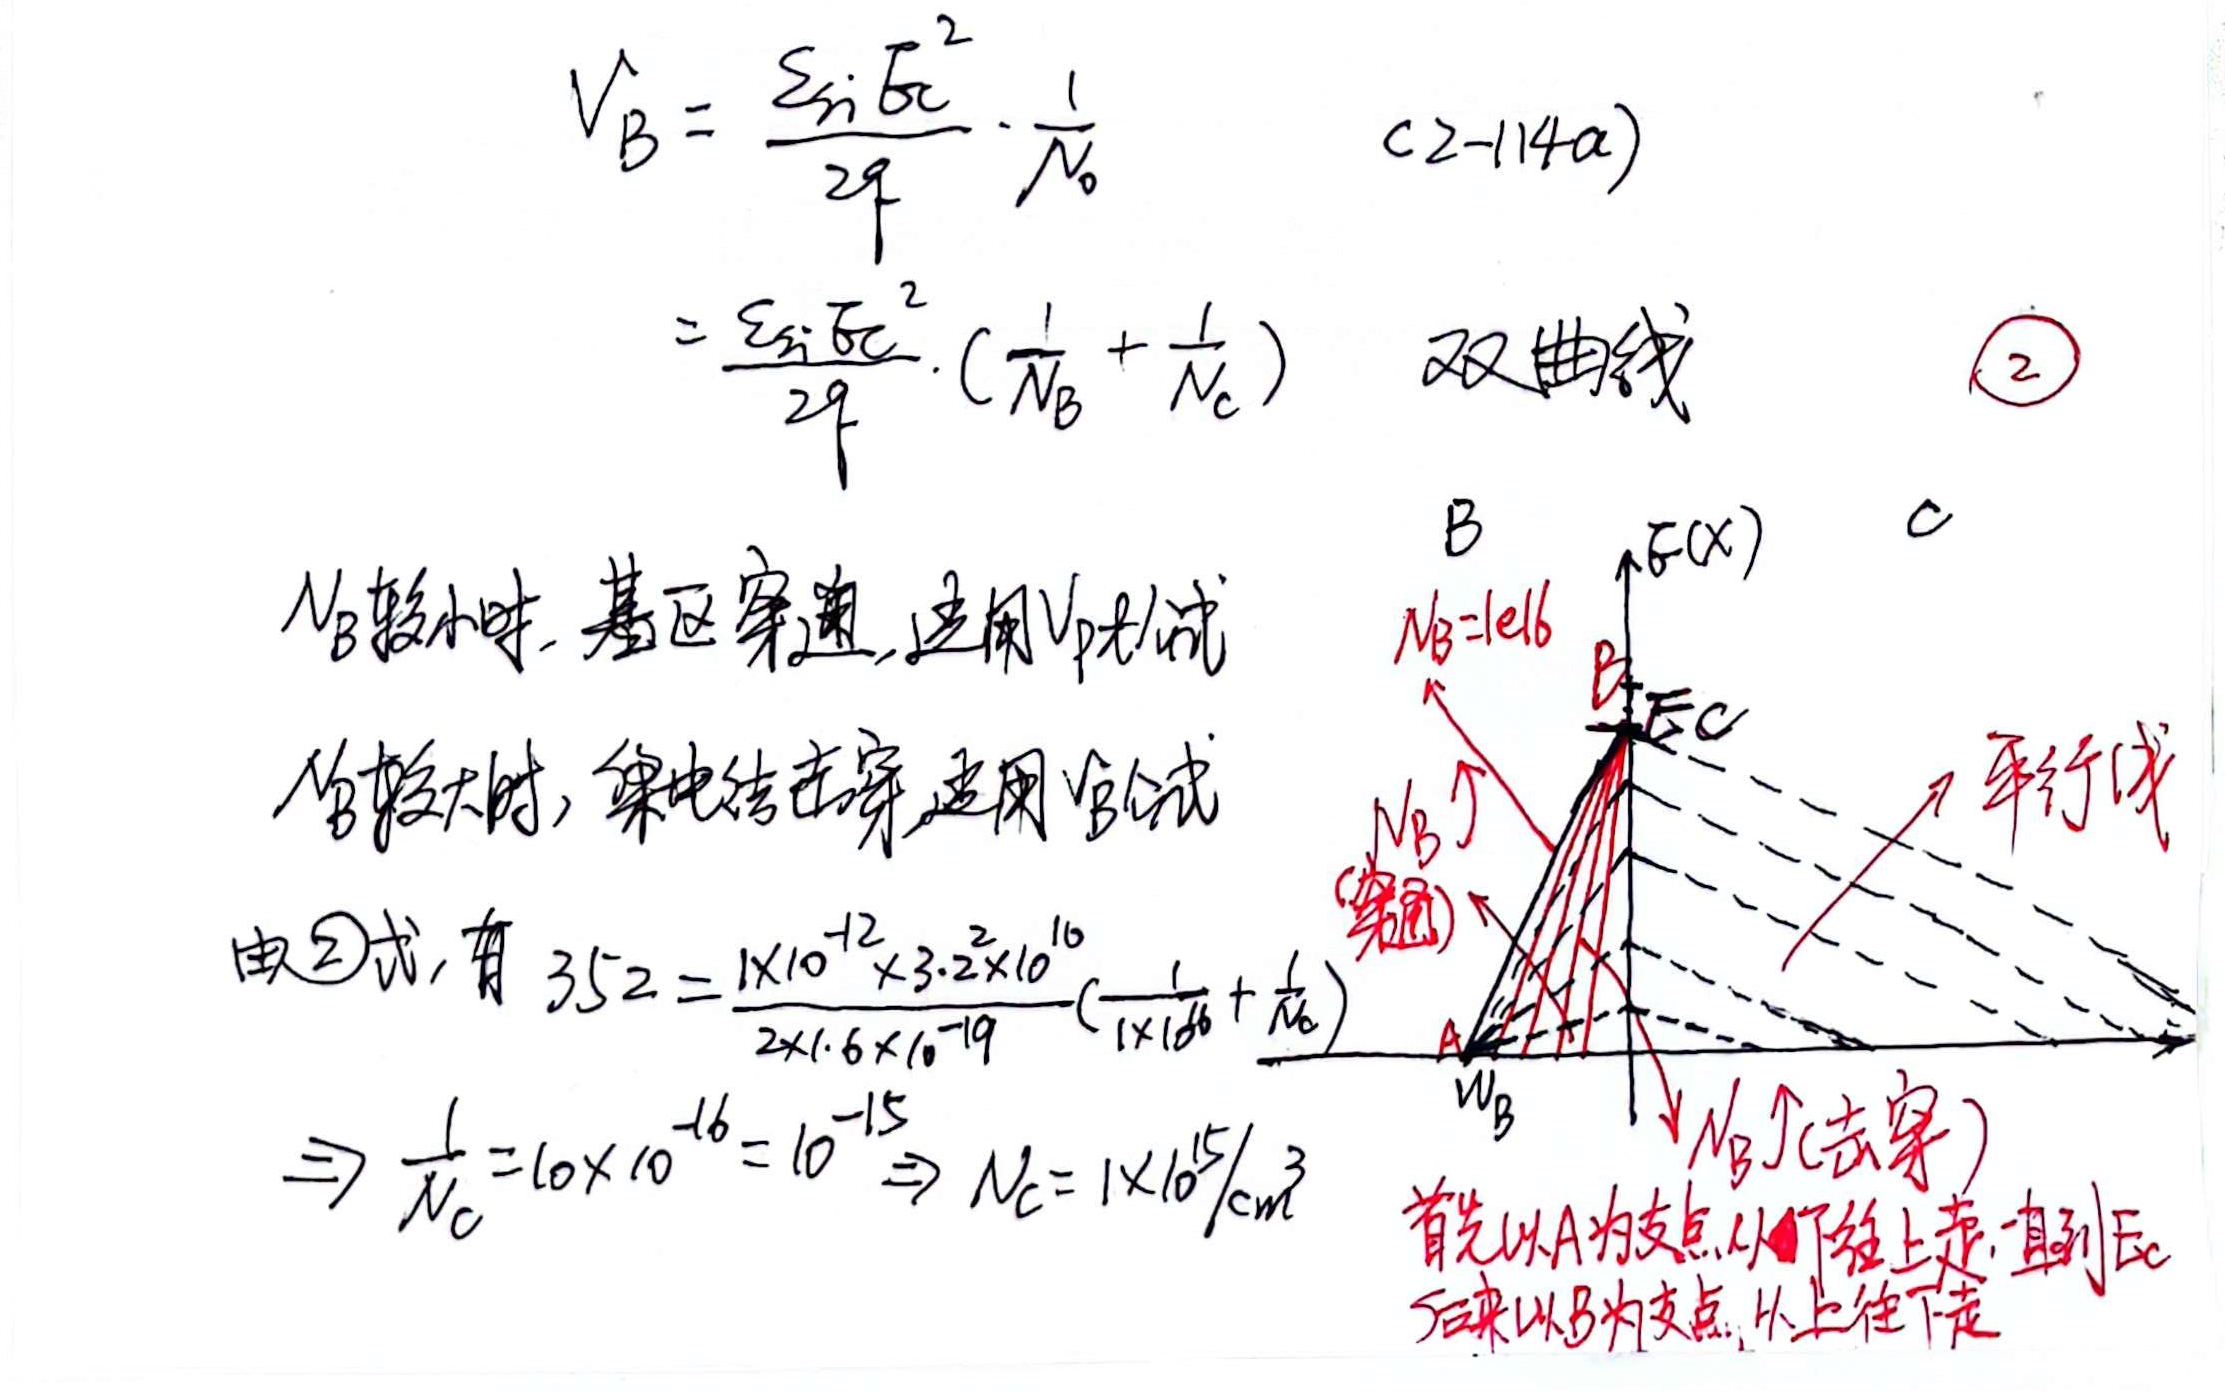 V_B = ε_si E_C² / 2q · 1/N₀ (2-114a)
= ε_si E_C² / 2q · (1/N_B + 1/N_C) 双曲线 ②
N_B较小时, 基区穿通, 适用V_pt公式
N_B较大时, 集电结击穿, 适用V_B公式
由②式, 有 352 = 1×10⁻¹² × 3.2² × 10¹⁰ / 2×1.6×10⁻¹⁹ (1/1×10¹⁶ + 1/N_C)
⇒ 1/N_C = 10×10⁻¹⁶ = 10⁻¹⁵ ⇒ N_C = 1×10¹⁵/cm³
B E(X) C
N_B=1e16
B E_C
平行线
N_B↑
(穿通)
A
W_B
N_B↑(击穿)
首先以A为支点, 从下往上走, 一直到E_C
后来以B为支点, 从上往下走